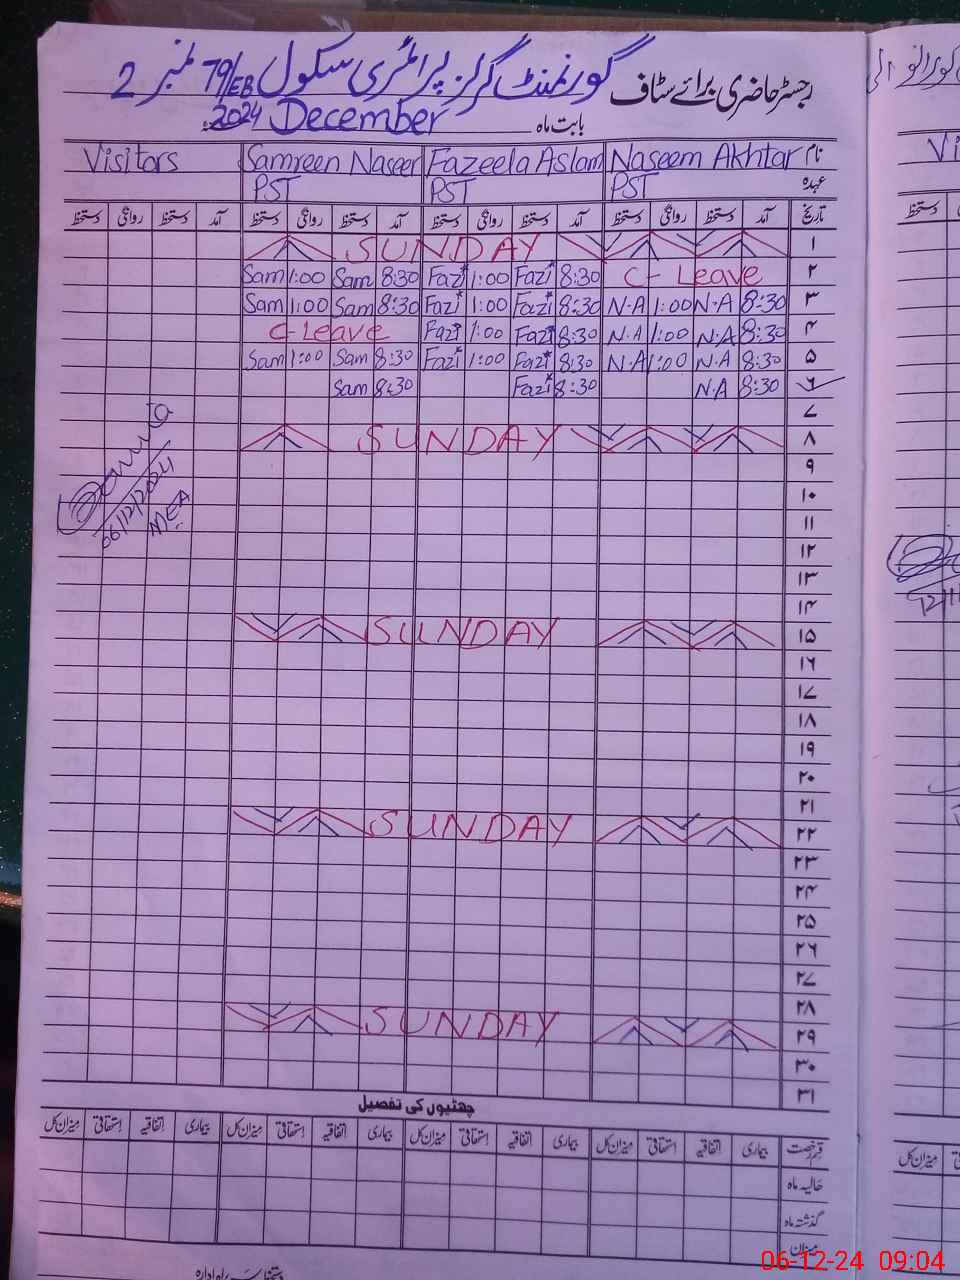 رجسٹر حاضری برائے سٹاف گورنمنٹ گرلز پرائمری سکول 79/EB نمبر 2
بابت ماہ December 2024ء
نام Naseem Akhtar Fazeela Aslam Samreen Naseer Visitors
عہدہ PST PST PST
تاریخ آمد دستخط روانگی دستخط آمد دستخط روانگی دستخط آمد دستخط روانگی دستخط آمد دستخط روانگی دستخط
۱ SUNDAY
۲ C- Leave 8:30 Fazi 1:00 Fazi 8:30 Sam 1:00 Sam
۳ 8:30 N.A 1:00 N.A 8:30 Fazi 1:00 Fazi 8:30 Sam 1:00 Sam
۴ 8:30 N.A 1:00 N.A 8:30 Fazi 1:00 Fazi C-Leave
۵ 8:30 N.A 1:00 N.A 8:30 Fazi 1:00 Fazi 8:30 Sam 1:00 Sam
۶ 8:30 N.A 8:30 Fazi 8:30 Sam
۷
۸ SUNDAY
۹
۱۰
06/12/2024
MEA
۱۱
۱۲
۱۳
۱۴
۱۵ SUNDAY
۱۶
۱۷
۱۸
۱۹
۲۰
۲۱
۲۲ SUNDAY
۲۳
۲۴
۲۵
۲۶
۲۷
۲۸
۲۹ SUNDAY
۳۰
۳۱
چھٹیوں کی تفصیل
قسم رخصت بیماری اتفاقیہ استحقاقی میزان کل بیماری اتفاقیہ استحقاقی میزان کل بیماری اتفاقیہ استحقاقی میزان کل بیماری اتفاقیہ استحقاقی میزان کل
حالیہ ماہ
گذشتہ ماہ
میزان
دستخط سربراہ ادارہ
دستخط
میزان کل
06-12-24 09:04